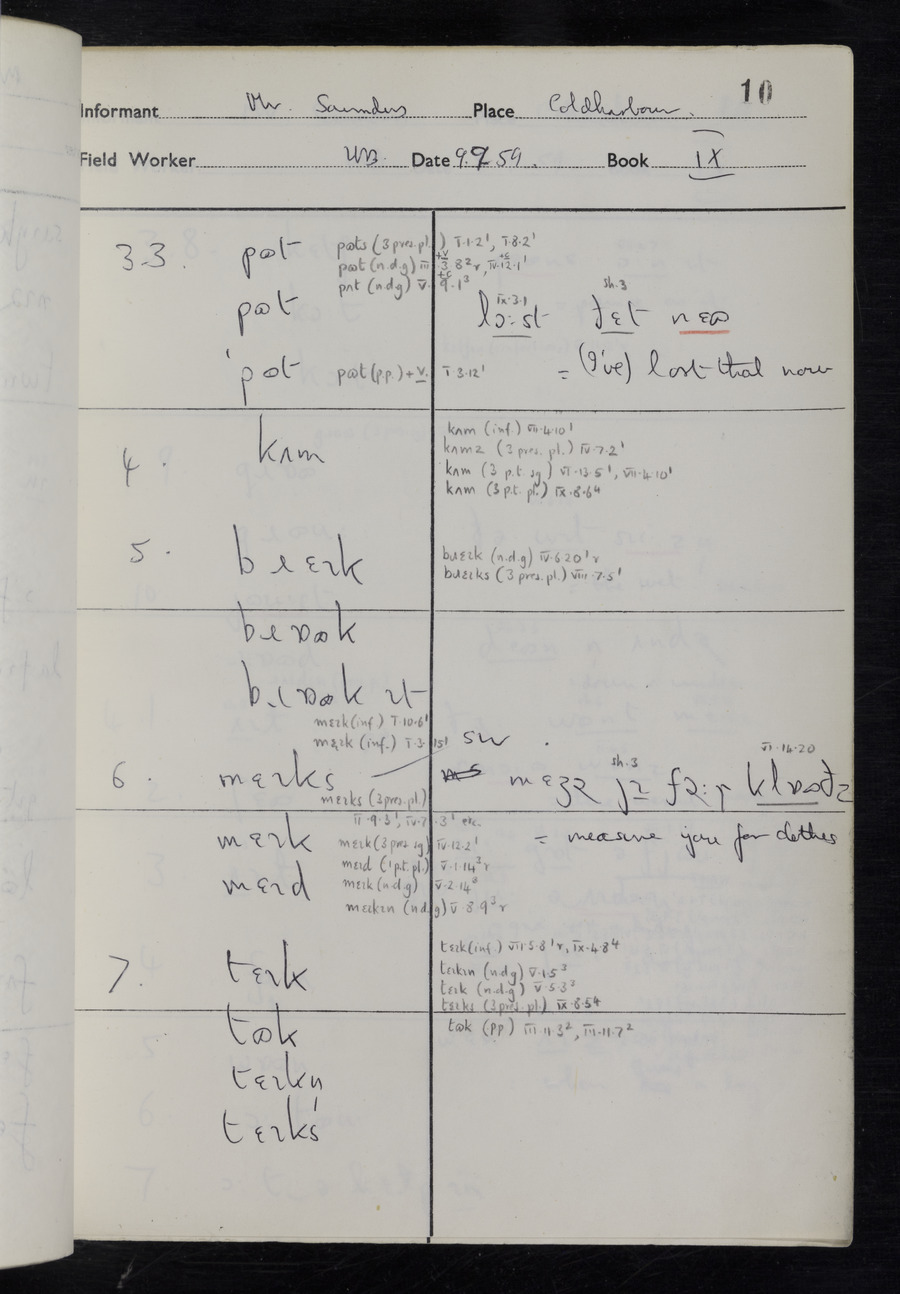 10
Informant Mr. Saunders Place Coldharbour.
Field Worker WB. Date 9.9.59. Book IX
3.3. pɷt pɷts (3 pres. pl.) I·1·2¹, I·8·2¹
pɷt (n.d.g) III·3·8²r, IV·12·1¹
+v +c
pʌt (n.d.g) V·9·1³
+c
pɷt
IX·3·1 sh.3
lɔ:st ðɛt nɛɷ
'pɷt pɷt (p.p.) + v. I·3·12¹ = (I've) lost that now
4. kʌm kʌm (inf.) VII·4·10¹
kʌmz (3 pres. pl.) IV·7·2¹
kʌm (3 p.t sg) VI·13·5¹, VII·4·10¹
kʌm (3 p.t. pl.) IX·8·6⁴
5. brɛɪk brɛɪk (n.d.g) IV·6·20¹r
brɛɪks (3 pres. pl.) VIII·7·5¹
brɷk
brɷk ɪt
mɛɪk (inf.) I·10·6¹
mɛɪk (inf.) I·3·15¹ SW.
6. mɛɪks
sh.3 VI·14·20
mɛʒə jə fə:ɹ
mɛɪks (3 pres. pl.)
II·9·3¹, IV·7·3¹ etc.
mɛɪk mɛɪk (3 pres. sg) IV·12·2¹ = measure you for clothes
mɛɪd mɛɪd (1 p.t. pl.) V·1·14³r
mɛɪk (n.d.g) V·2·14³
mɛɪkɪn (n.d.g) V·8·9³r
7. tɛɪk tɛɪk (inf.) VII·5·8¹r, IX·4·8⁴
tɛɪkɪn (n.d.g) V·1·5³
tɛɪk (n.d.g) V·5·3³
tɛɪks (3 pres. pl.) IX·8·5⁴
tɷk tɷk (pp) III·11·3², III·11·7²
tɛɪkn
tɛɪks